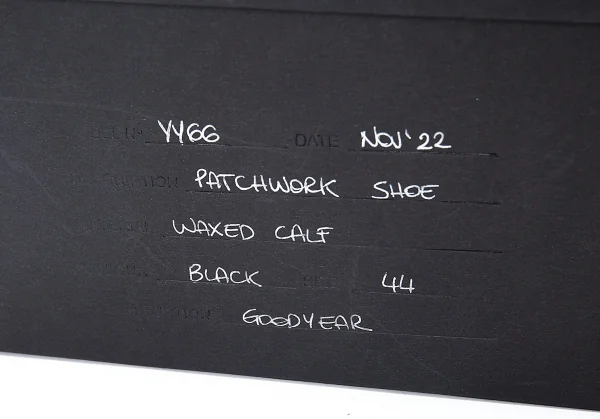 YY66 DATE NOV'22
PATCHWORK SHOE
WAXED CALF
BLACK 44
GOODYEAR